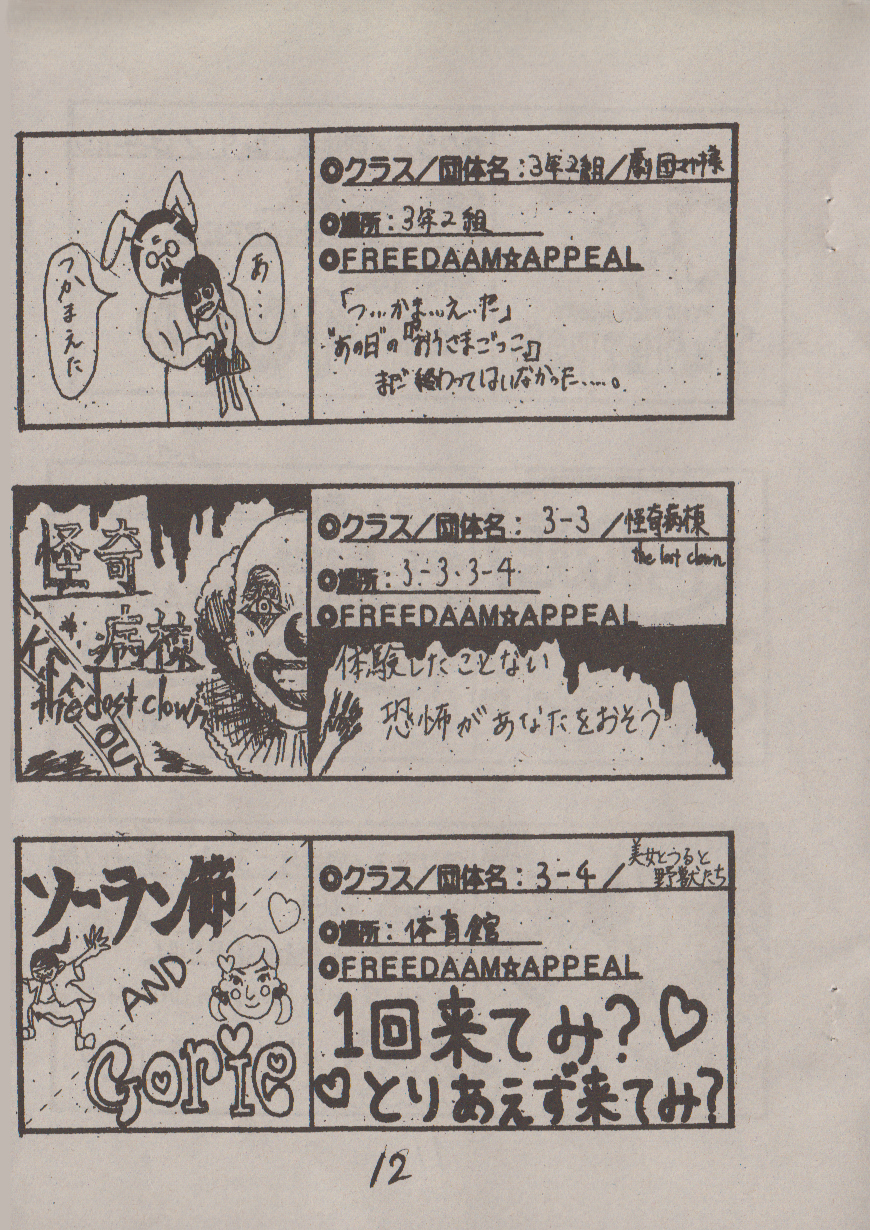 つかまえた
あ…
◎クラス／団体名：3年2組／劇団
◎場所：3年2組
◎FREEDAAM☆APPEAL
「つ…かま…え…た」
"あの日"の『おうさまごっこ』
まだ終わってはいなかった……。
怪奇
病棟
the lost clown
OUT
◎クラス／団体名：3-3／怪奇病棟
the lost clown
◎場所：3-3・3-4
◎FREEDAAM☆APPEAL
体験したことない
恐怖があなたをおそう
ソーラン節
AND
Gorie
◎クラス／団体名：3-4／美女とうると
野獣たち
◎場所：体育館
◎FREEDAAM☆APPEAL
1回来てみ?♡
♡とりあえず来てみ?
12